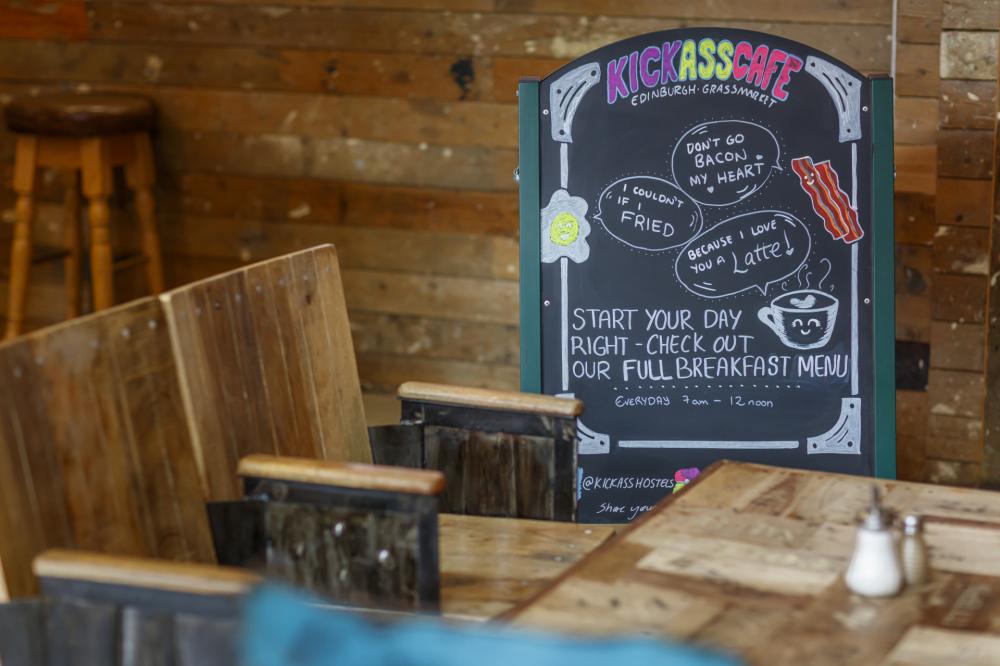 KICKASSCAFE
EDINBURGH · GRASSMARKET
DON'T GO
BACON
MY HEART
I COULDN'T
IF I
FRIED
BECAUSE I LOVE
YOU A Latte!
START YOUR DAY
RIGHT - CHECK OUT
OUR FULL BREAKFAST MENU
EVERYDAY 7am - 12 noon
@KICKASSHOSTELS
Share you